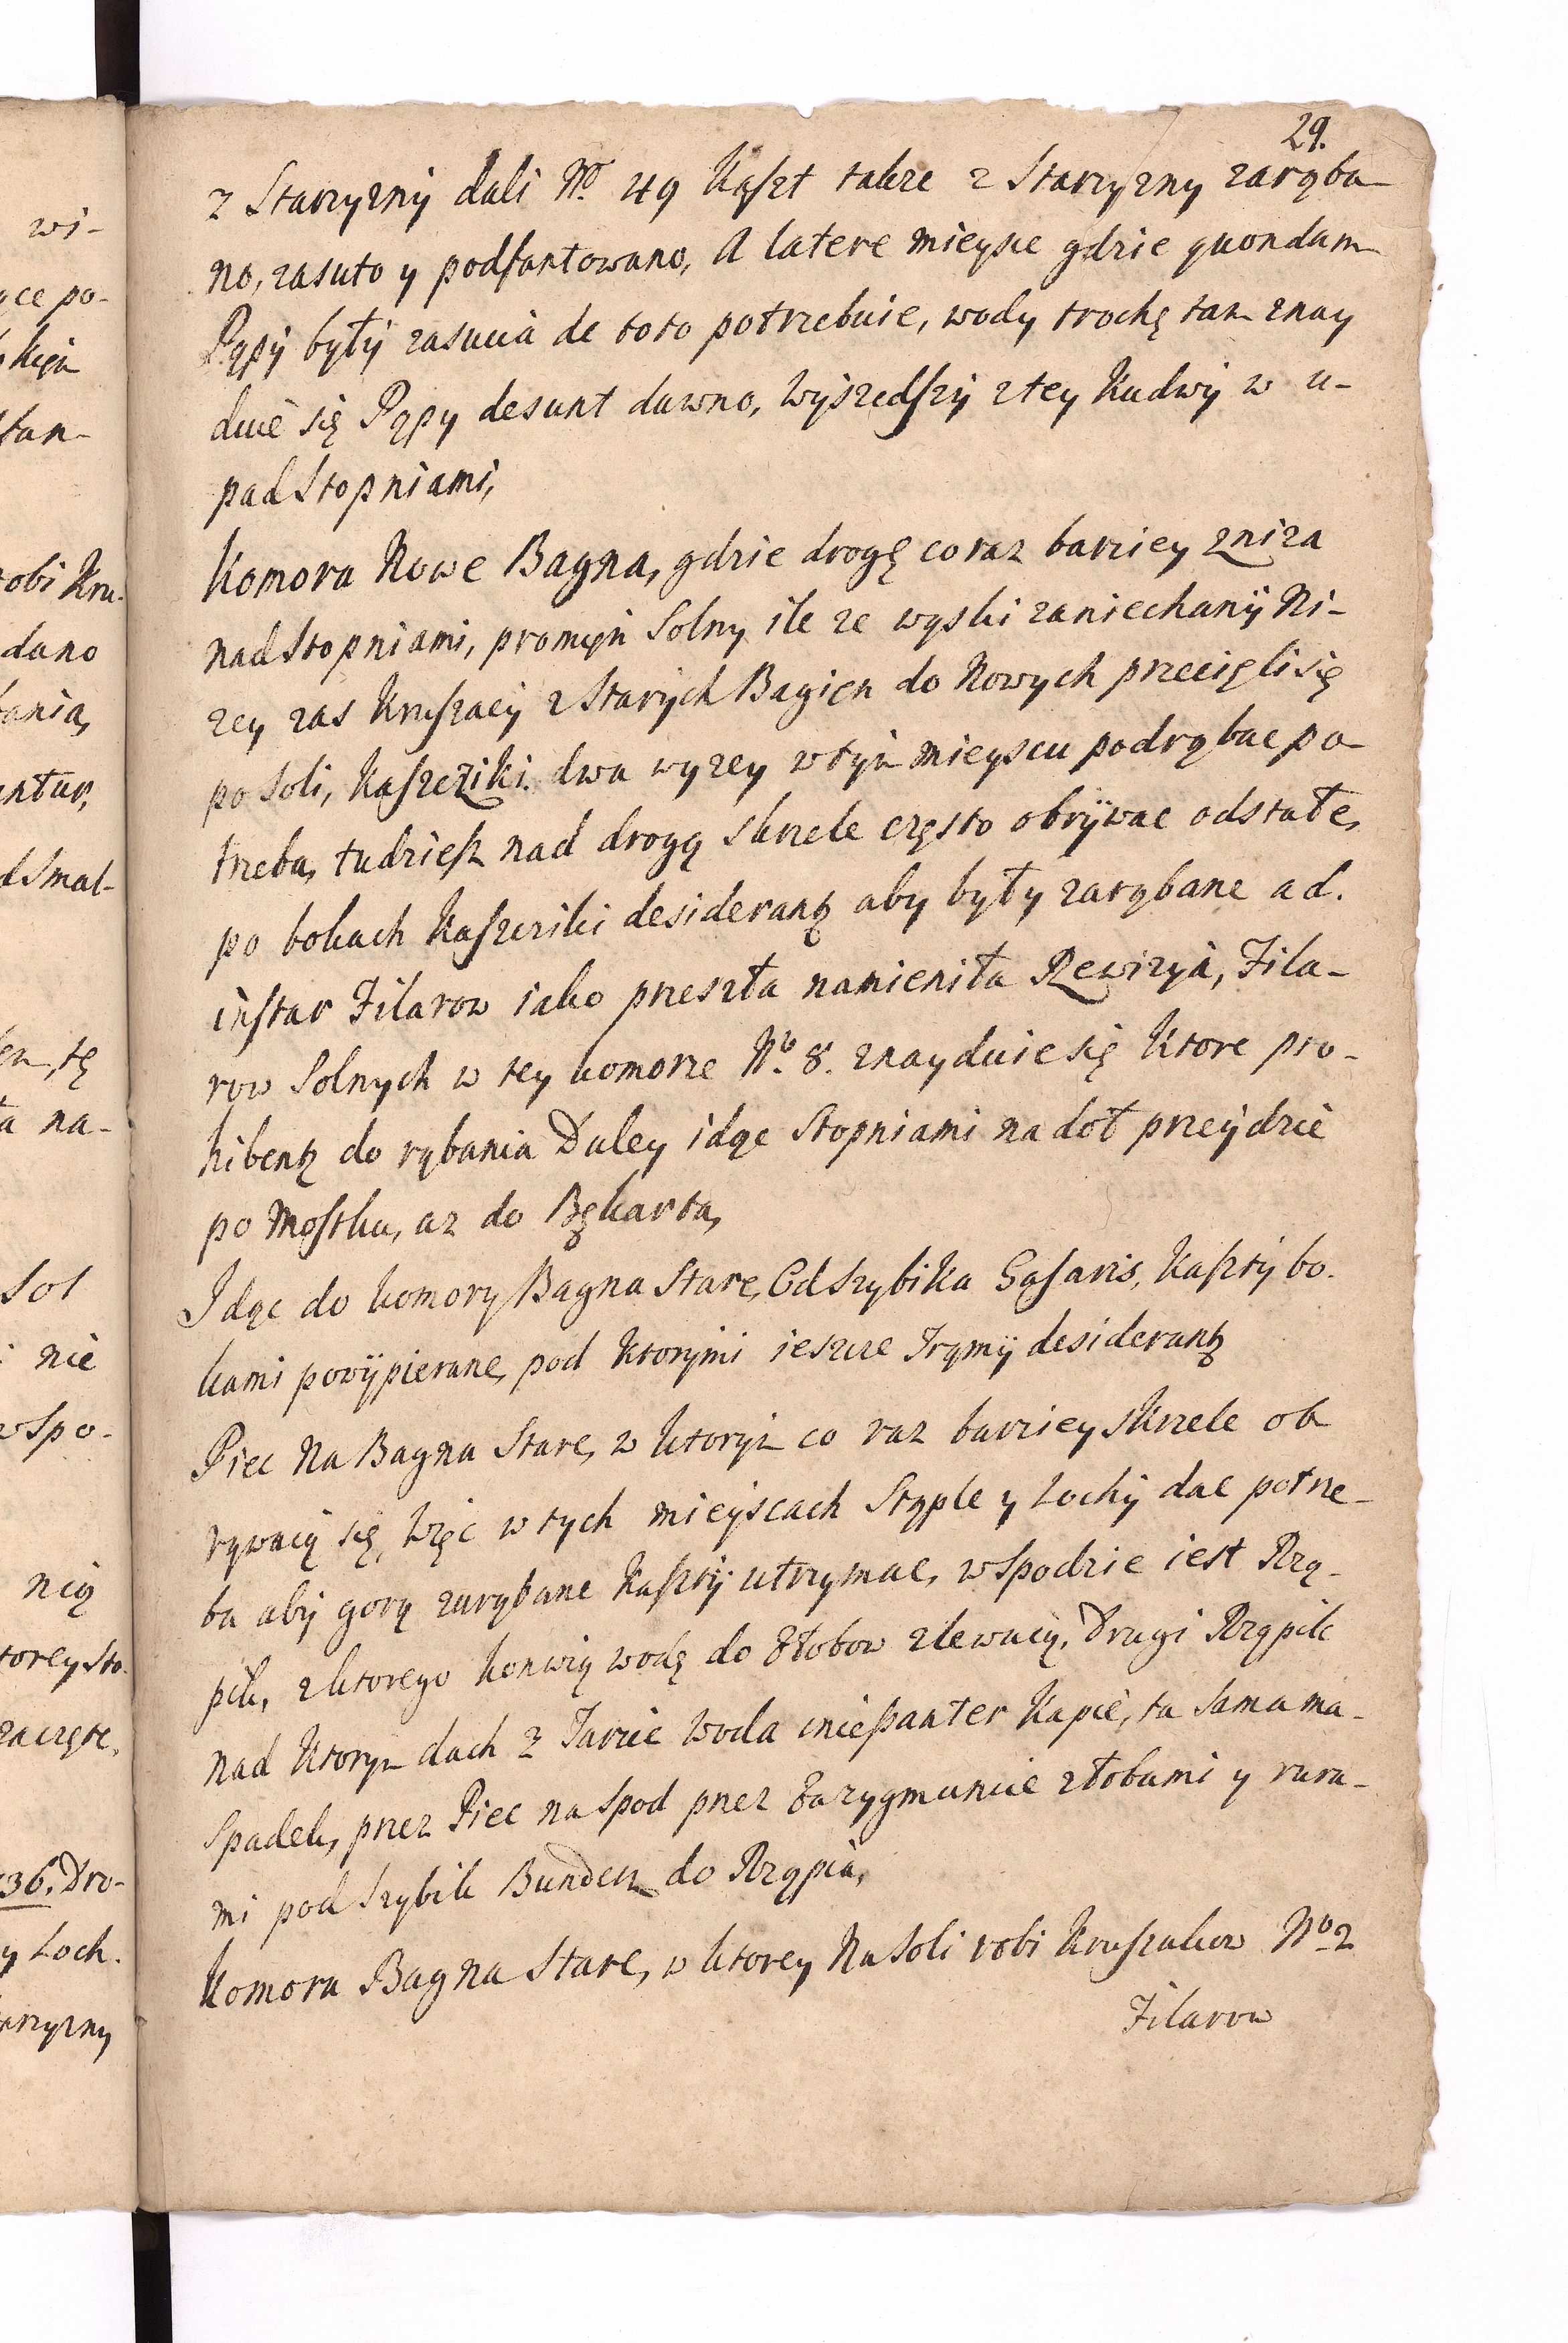 wi-
ące po-
Kęn
tan-
robi Kru-
dano
bania,
untur,
d Smal-
ten, tę
ta na-
Sol
nie
w Spo-
nią
torey Sto-
zaczęte,
36. Dro-
y Loch.
arzyzny
29.
z Starzyzny dali No. 49 Kąszt takze z Starzyzny zarąba-
no, zasuto y podfantowano, A latere mieysce gdzie quondam
Pąpy były zasucia de toto potrzebuie, wody trochę tam znay
duie się Pąpy desunt dawno, Wyszedszy z tey Kudwy w u-
pad Stopniami,
Komora Nowe Bagna, gdzie drogę co raz barziey zniza
nad Stopniami, promyn Solny ile ze wąski zaniechany Ni-
zey zas Kruszacy z Starych Bagien do Nowych przecięli się
po Soli, Kaszcziki dwa wyzey w tym mieyscu podrąbac po-
trzeba, tudziesz nad drogą skrzele często obrywac odstałe,
po bokach Kaszcziki desiderantz aby były zarąbane ad.
instar Filarow iako przeszła namieniła Rewizyia, Fila-
row Solnych w tey komorze No. 8. znayduie się Ktore pro-
hibentz do rąbania Daley idąc Stopniami na doł przeydzie
po Mostku, az do Bękarta,
Idąc do komory Bagna Stare, Od Szybika Gąsaris, Kaszty bo-
kami powypierane, pod Ktorymi ieszcze Trąmy desiderantz
Piec Na Bagna Stare, w ktorym co raz barziey skrzele ob
rywaią się, Więc w tych mieyscach Stąple y Lochy dac potrze-
ba aby gorą zarąbane Kaszty utrzymac, w Spodzie iest Rzą-
pik, z ktorego konwią wodę do Złobow zlewaią, Drugi Rząpik
nad Ktorym dach z Tarcic Woda incessanter Kapie, ta Sama ma
Spadek, przez Piec na Spod przez Zazygmuncie złobami y rura-
mi pod Szybik Bunden do Rząpia,
Komora Bagna Stare, w ktorey Na Soli robi Kruszakow No. 2
Filarow